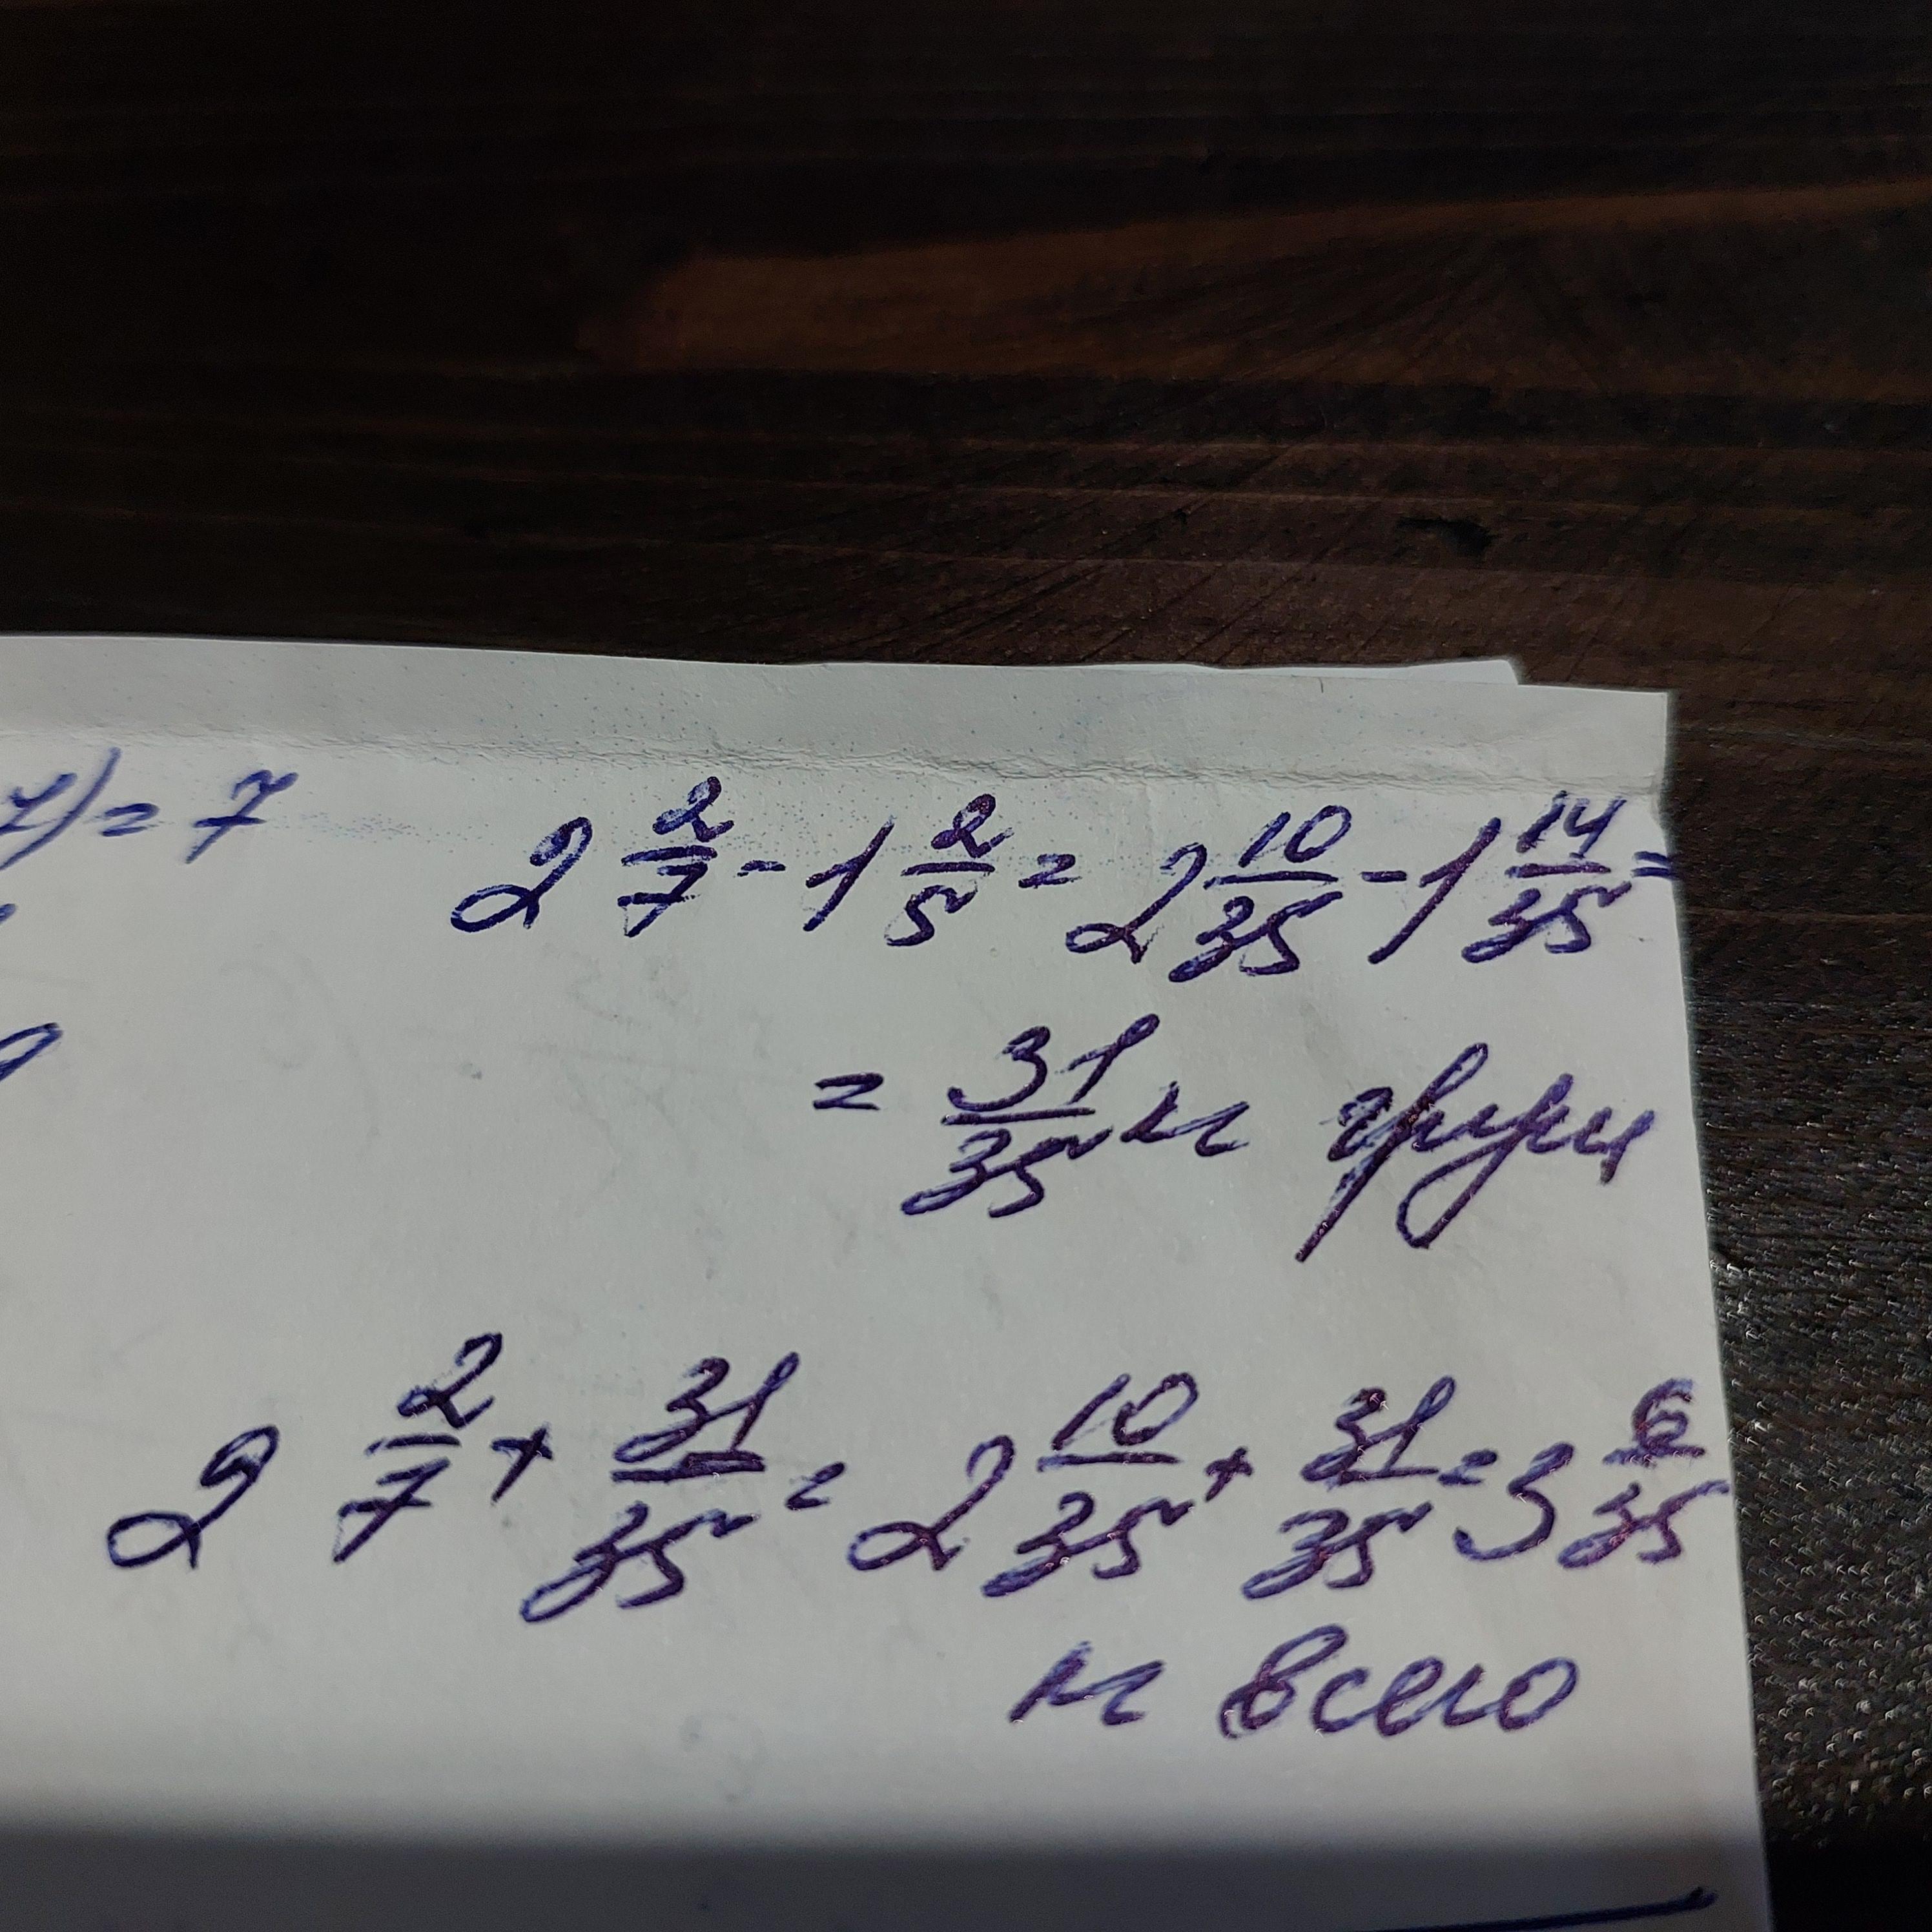 ) = 7
2 2/7 - 1 2/5 = 2 10/35 - 1 14/35 =
= 31/35 м
2 2/7 + 31/35 = 2 10/35 + 31/35 = 3 6/35
м всего